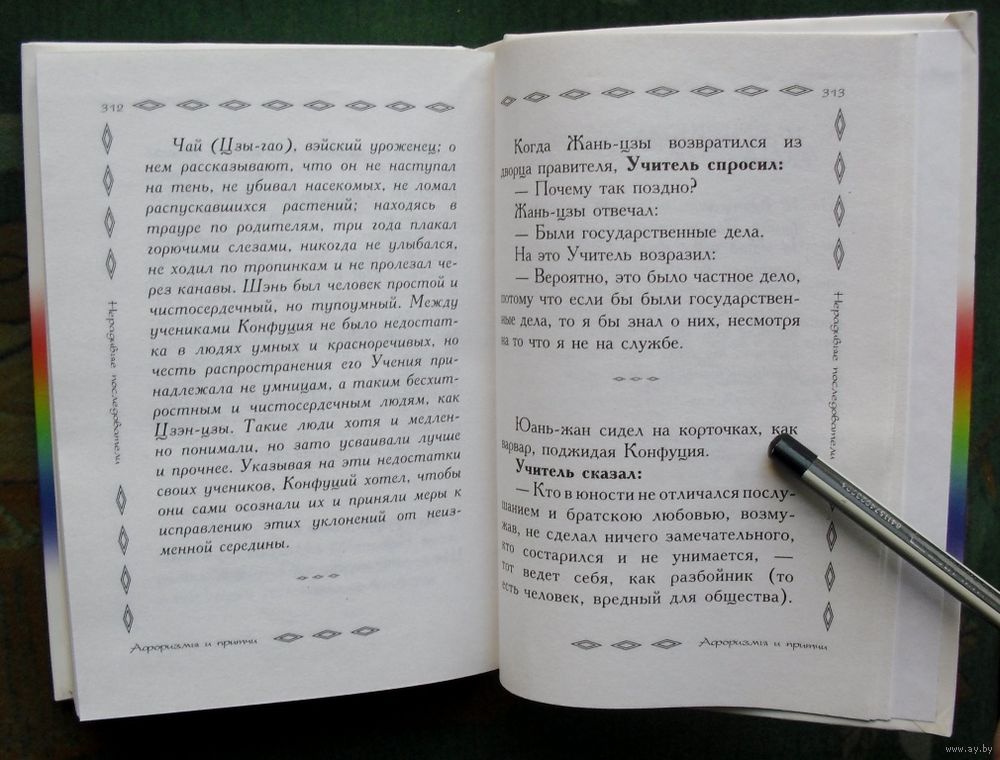 312
Чай (Цзы-гао), вэйский уроженец; о
нем рассказывают, что он не наступал
на тень, не убивал насекомых, не ломал
распускавшихся растений; находясь в
трауре по родителям, три года плакал
горючими слезами, никогда не улыбался,
не ходил по тропинкам и не пролезал че-
рез канавы. Шэнь был человек простой и
чистосердечный, но тупоумный. Между
учениками Конфуция не было недостат-
ка в людях умных и красноречивых, но
честь распространения его Учения при-
надлежала не умницам, а таким бесхит-
ростным и чистосердечным людям, как
Цзэн-цзы. Такие люди хотя и медлен-
но понимали, но зато усваивали лучше
и прочнее. Указывая на эти недостатки
своих учеников, Конфуций хотел, чтобы
они сами осознали их и приняли меры к
исправлению этих уклонений от неиз-
менной середины.
Нерадивые последователи
Афоризмы и притчи
313
Когда Жань-цзы возвратился из
дворца правителя, Учитель спросил:
— Почему так поздно?
Жань-цзы отвечал:
— Были государственные дела.
На это Учитель возразил:
— Вероятно, это было частное дело,
потому что если бы были государствен-
ные дела, то я бы знал о них, несмотря
на то что я не на службе.
Юань-жан сидел на корточках, как
варвар, поджидая Конфуция.
Учитель сказал:
— Кто в юности не отличался послу-
шанием и братскою любовью, возму-
жав, не сделал ничего замечательного,
кто состарился и не унимается, —
тот ведет себя, как разбойник (то
есть человек, вредный для общества).
Нерадивые последователи
Афоризмы и притчи
www.ay.by